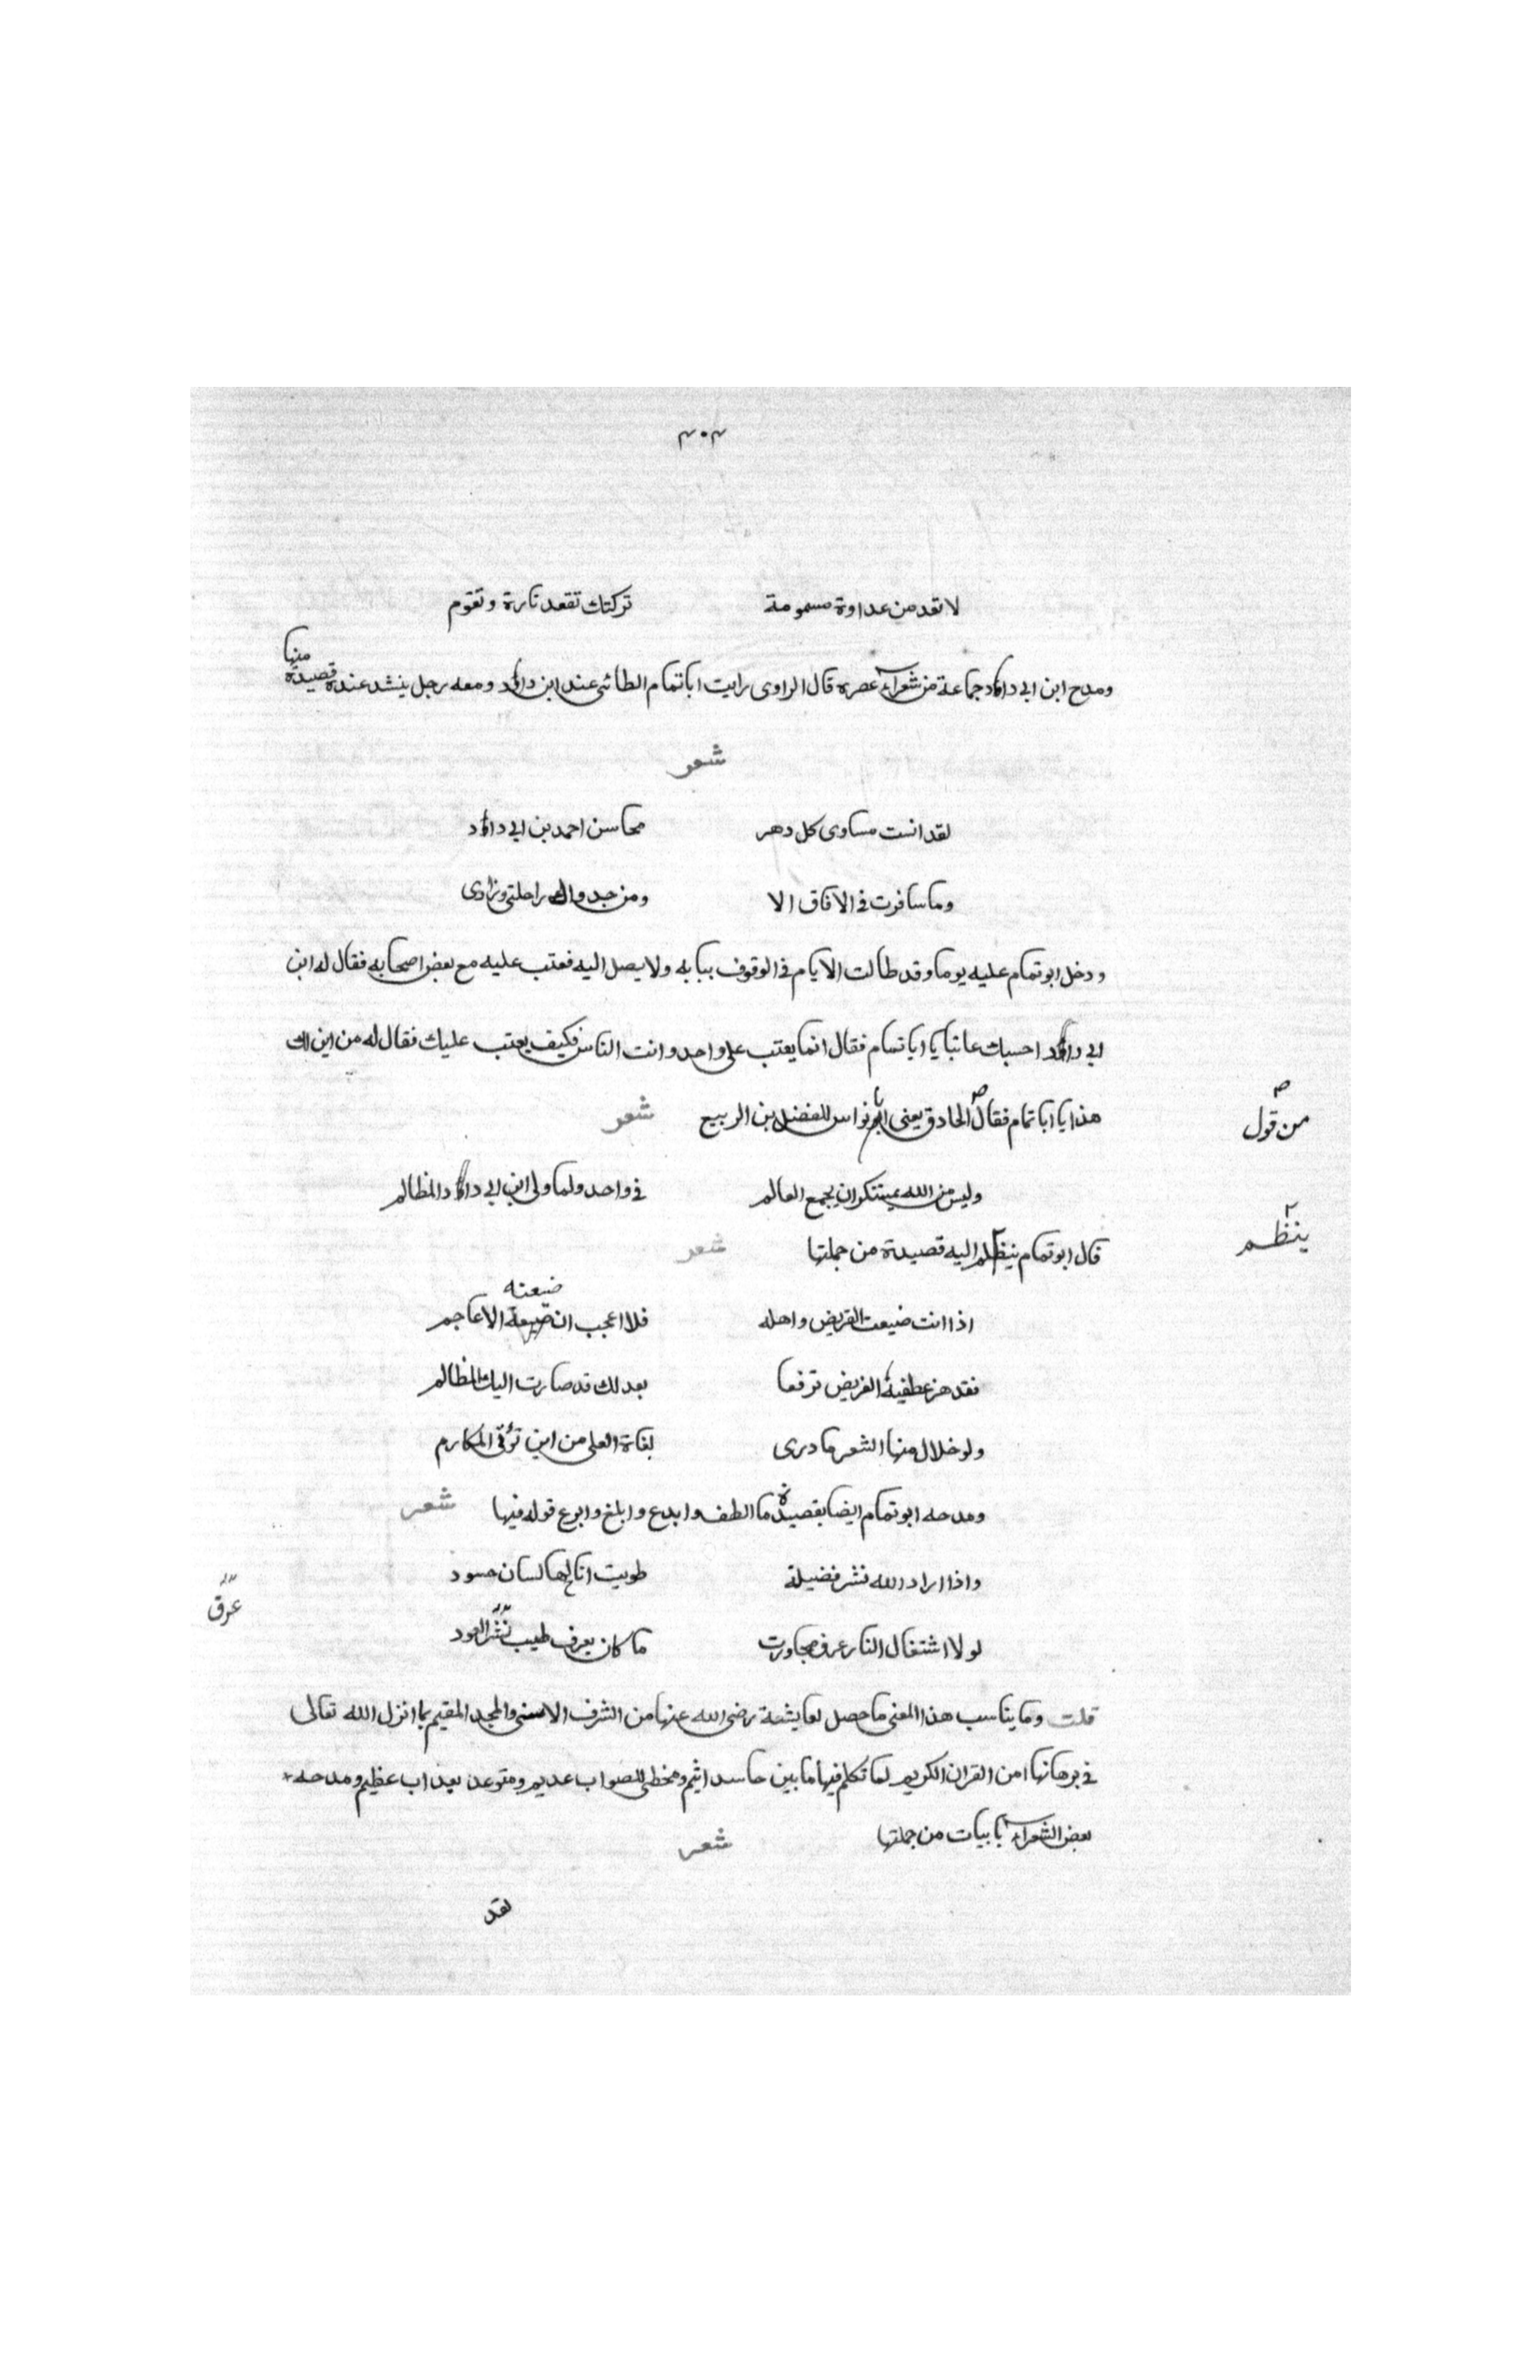 ٣٠٣
لا تقد من عداوة مسمومة تركتك تقعد تارة وتقوم
ومدح ابن ابي داؤد جماعة من شعراء عصره قال الراوى رايت ابا تمام الطائى عند ابن داؤد ومعه رجل ينشد عنده قصيدة منها
شعر
لقد انست مساوى كل دهر محاسن احمد بن ابي داؤد
وما سافرت فى الافاق الا ومن جدواك راحلتى وزادى
ودخل ابو تمام عليه يوما وقد طالت الايام فى الوقوف ببابه ولا يصل اليه فعتب عليه مع بعض اصحابه فقال له ابن
ابي داؤد احسبك عاتبا يا ابا تمام فقال انما يعتب على واحد وانت الناس فكيف يعتب عليك فقال له من اين لك
هذا يا ابا تمام فقال الحادق يعنى ابو نواس للفضل بن الربيع شعر
من قول
وليس من الله بمستنكر ان يجمع العالم فى واحد ولما ولى ابن ابي داؤد المظالم
قال ابو تمام ينظلم اليه قصيدة من جملتها شعر
ينظم
اذا انت ضيعت القريض واهله فلا اعجب ان ضيعة الاعاجم
ضيعته
فقد هز عطفية القريض ترفعا بعدلك قد صارت اليك المظالم
ولو خلال منها الشعر ما درى بغاة العلى من اين تؤتى المكارم
ومدحه ابو تمام ايضا بقصيدة ما الطف وابدع وابلغ وابرع قوله فيها شعر
واذا اراد الله نشر فضيلة طويت اتاح لها لسان حسود
لولا اشتغال النار عرف مجاورت ما كان يعرف طيب نشر العود
عرق
قلت وما يناسب هذا المعنى ما حصل لعايشة رضى الله عنها من الشرف الاسنى والمجد المقيم بما انزل الله تعالى
فى برهانها من القران الكريم لما تكلم فيها ما بين حاسد اثيم ومخطى للصواب عديم ومتوعد بعذاب عظيم ومدحه
بعض الشعراء بابيات من جملتها شعر
لقد